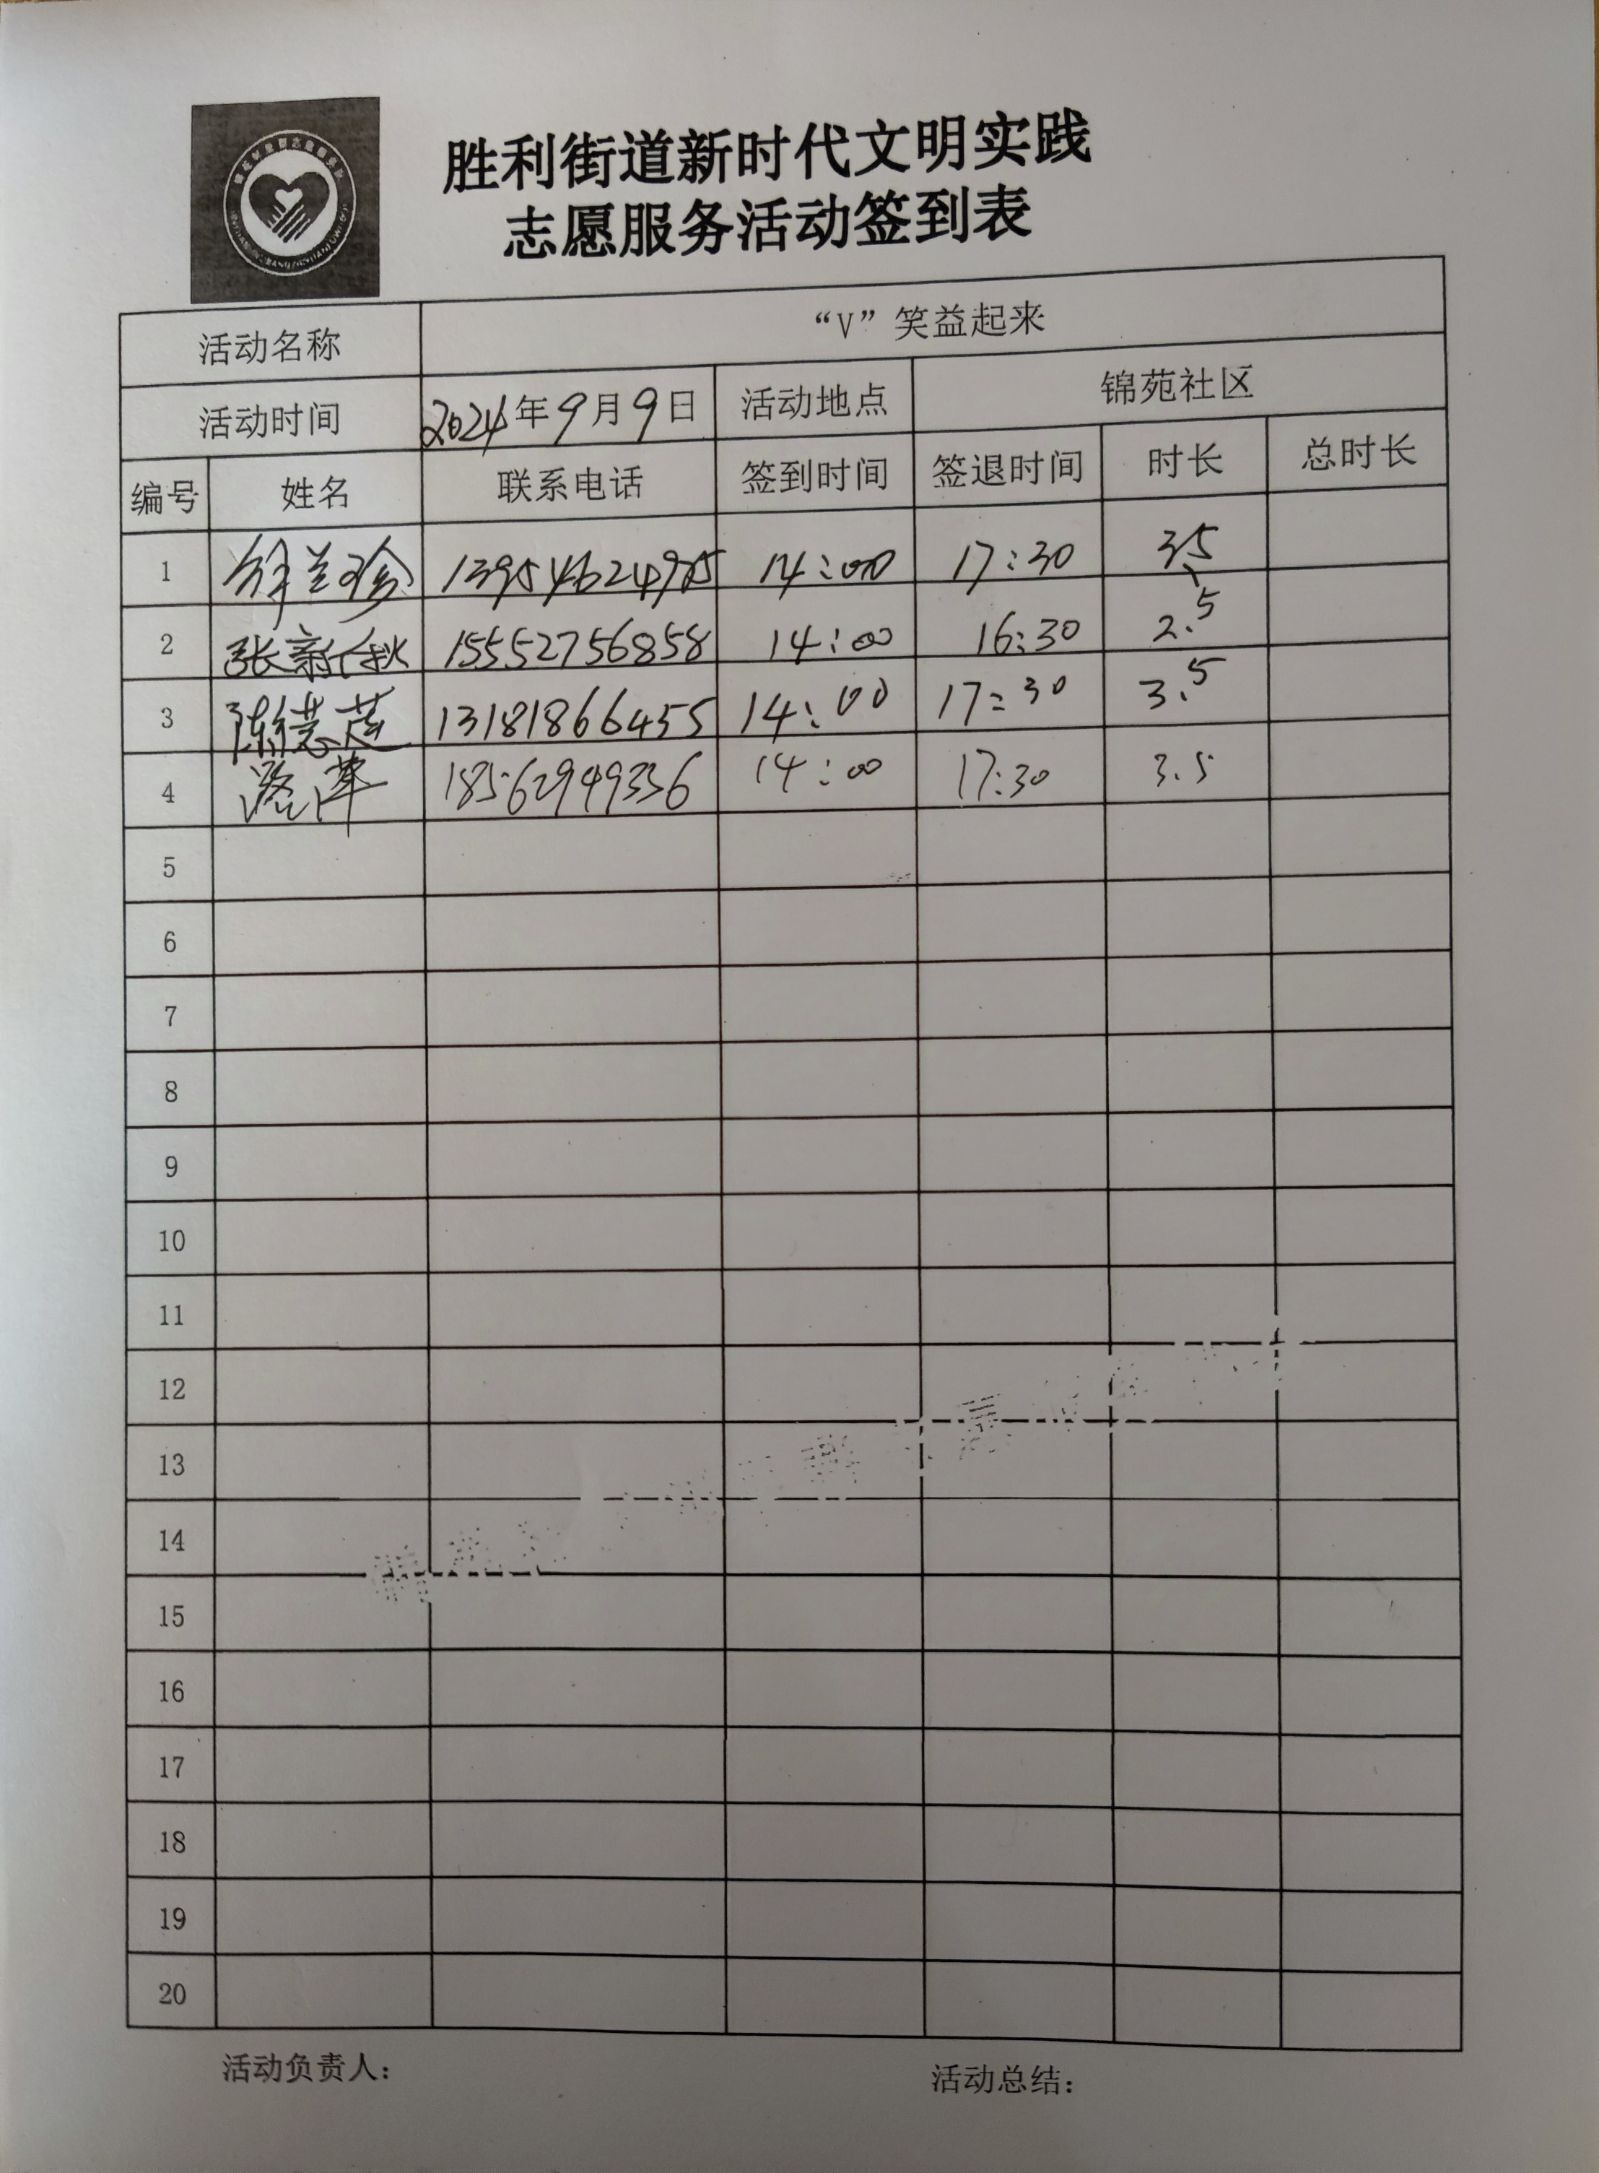 胜利街道新时代文明实践
志愿服务活动签到表
活动名称 “V”笑益起来
活动时间 2024年9月9日 活动地点 锦苑社区
编号 姓名 联系电话 签到时间 签退时间 时长 总时长
1 徐兰珍 13954624975 14:00 17:30 3.5
2 张新秋 15552756858 14:00 16:30 2.5
3 陈德莲 13181866455 14:00 17:30 3.5
4 潘萍 18562949336 14:00 17:30 3.5
5
6
7
8
9
10
11
12
13
14
15
16
17
18
19
20
活动负责人： 活动总结：